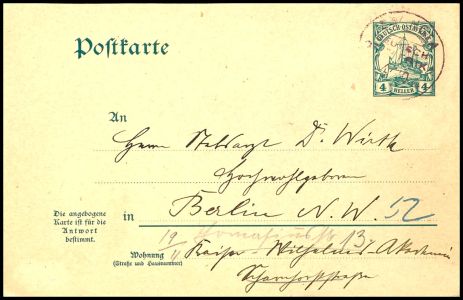 Postkarte
DEUTSCH-OSTAFRIKA
4 HELLER 4
An
Herrn Stabsarzt Dr. Wirth
Hochwohlgeboren
Die angebogene
Karte ist für die
Antwort
bestimmt.
in Berlin N.W. 52
19
13
Wohnung
(Straße und Hausnummer)
Kaiser-Wilhelms-Akademie
Scharnhorststraße